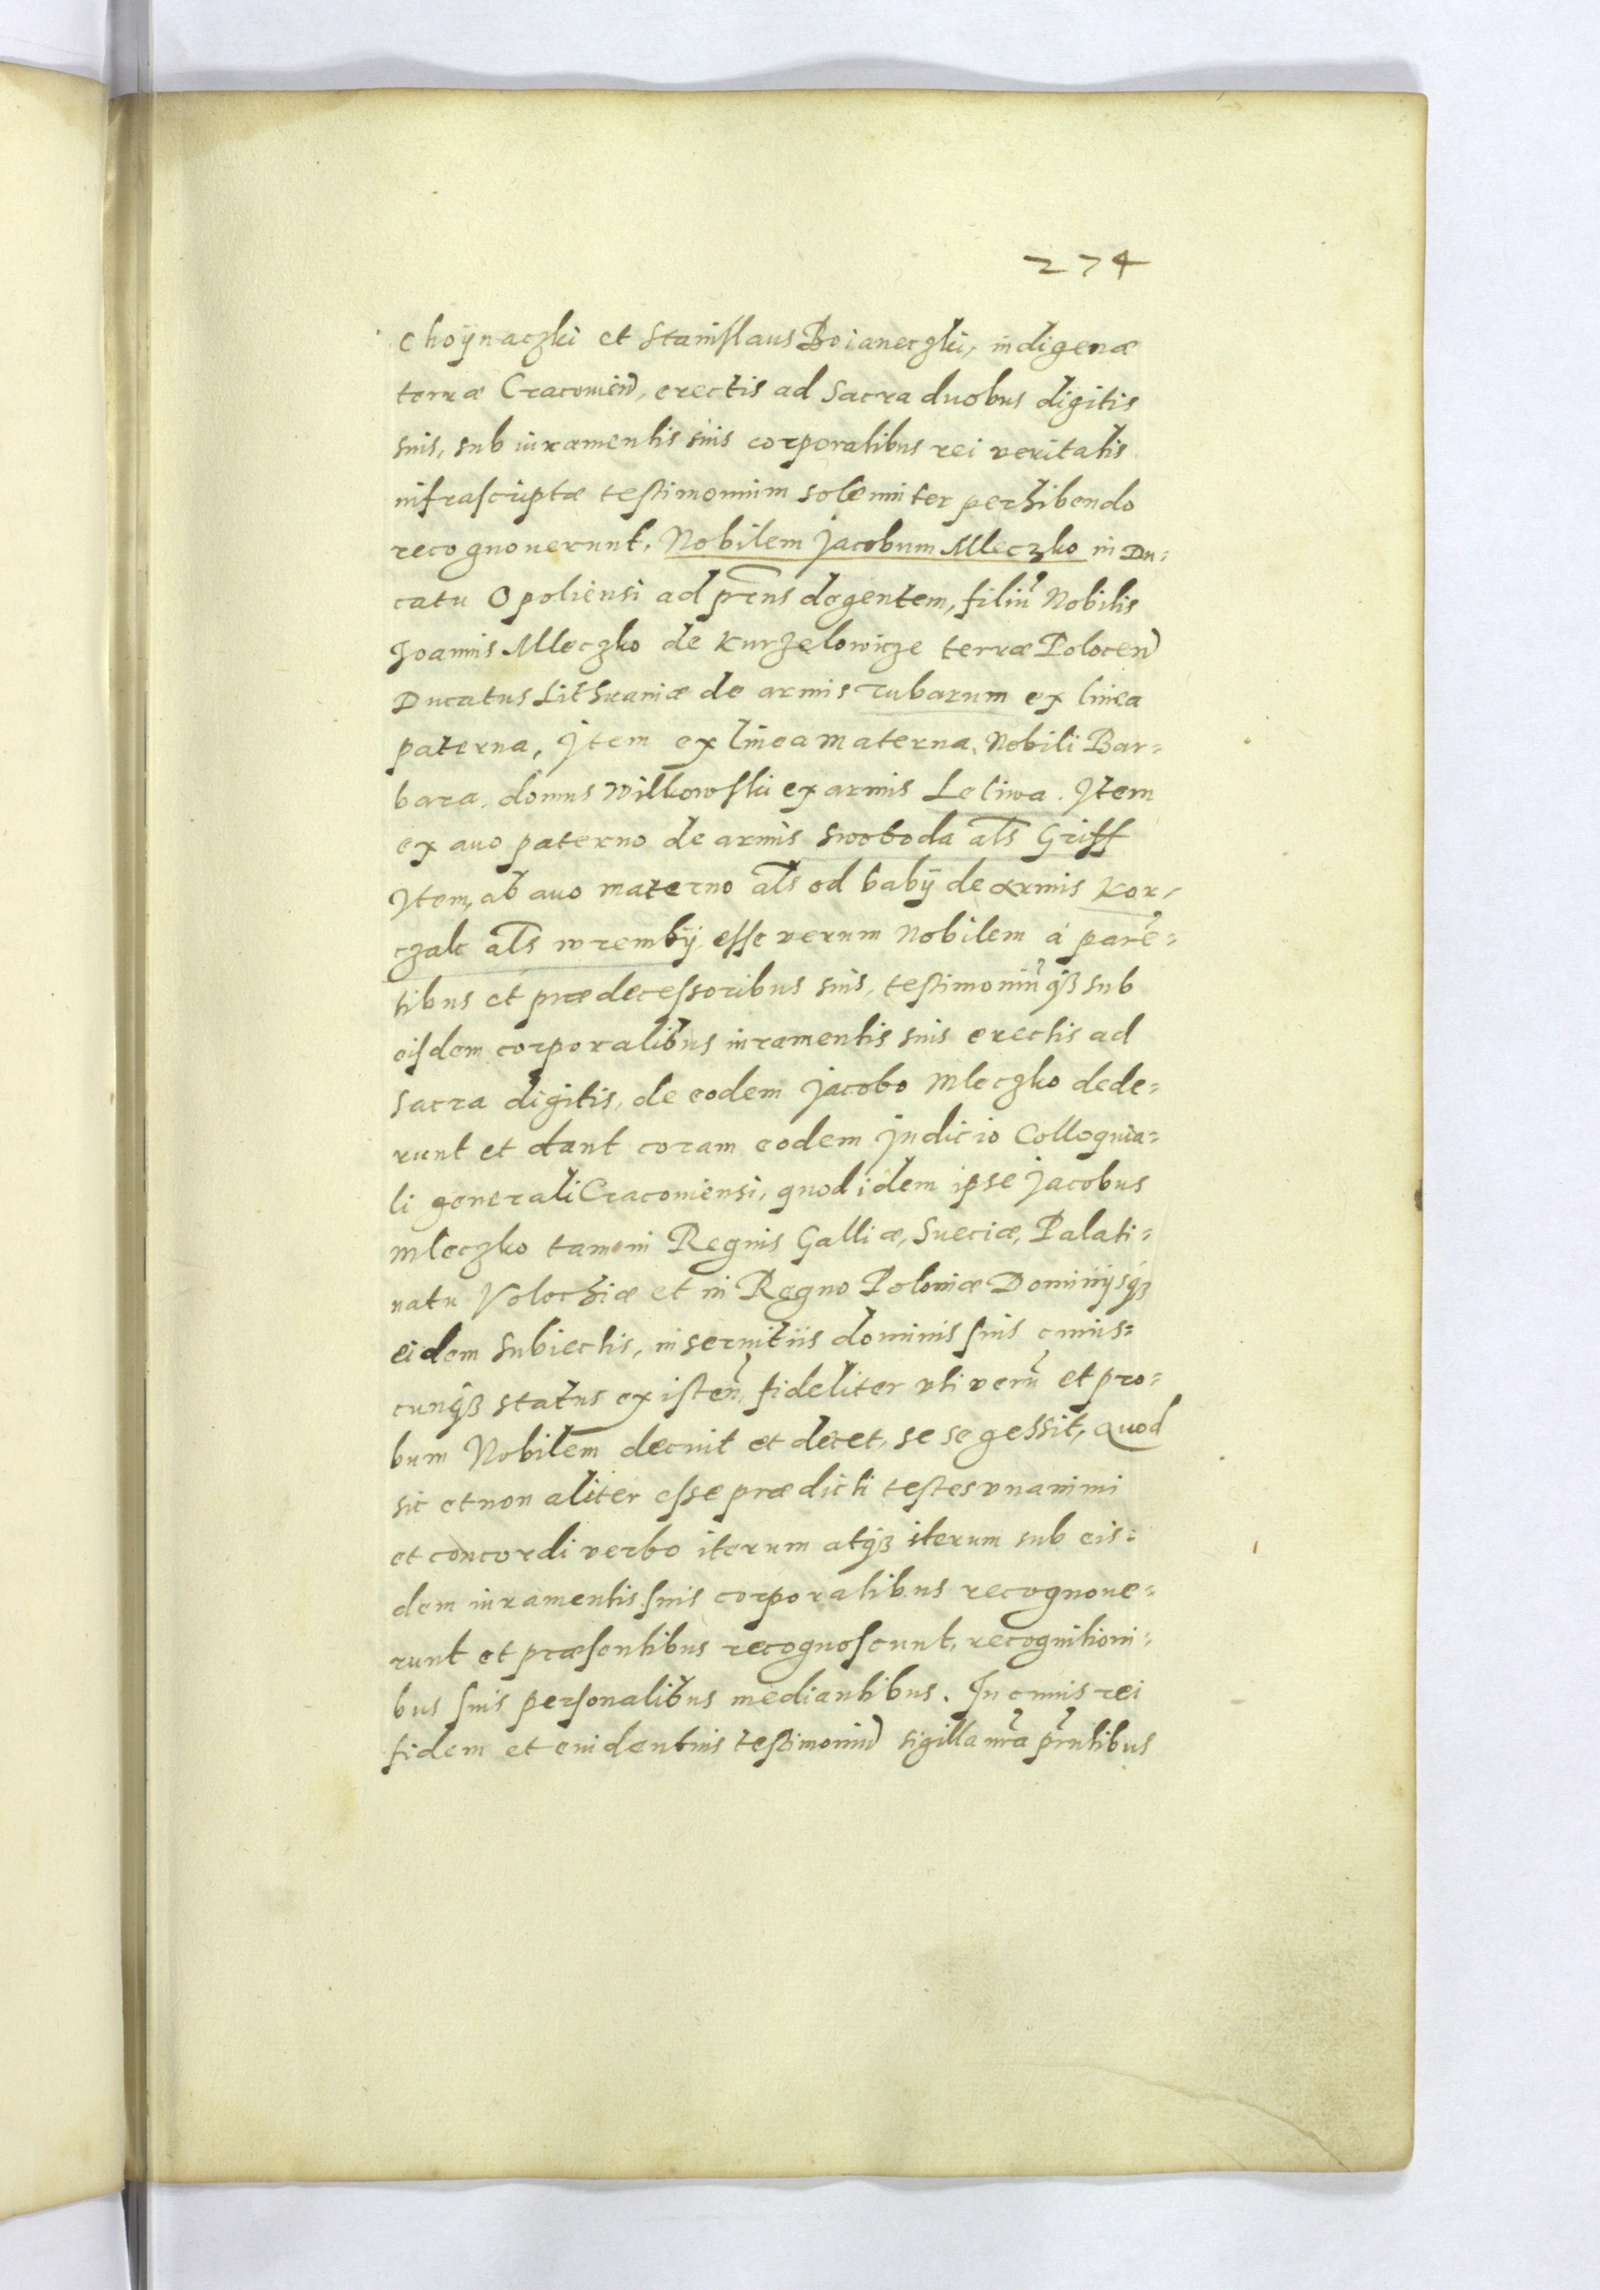 274
Choÿnaczki et Stanislaus Boianeczki, indigenæ
terræ Cracouien̄, erectis ad Sacra duobus digitis
suis, sub iuramentis suis corporalibus rei veritatis
infrascriptæ testimonium solemniter perhibendo
recognouerunt, Nobilem Jacobum Mleczko in Du-
catu Opoliensi ad pr̄ns degentem, filiū Nobilis
Joannis Mleczko de Kurzelowicze terræ Polocen̄
Ducatus Lithuaniæ de armis Tubarum ex linea
paterna, Item ex linea materna, Nobili Bar-
bara, domus Wilkowski ex armis Leliwa. Item
ex auo paterno de armis Swoboda al̄s Griff
Item, ab auo materno al̄s od babÿ de armis Kor-
czak al̄s wrembÿ, esse verum Nobilem á parē-
tibus et prædecessoribus suis, testimoniū qꝫ sub
eisdem corporalibus iuramentis suis erectis ad
sacra digitis, de eodem Jacobo Mleczko dede-
runt et dant coram eodem Judicio Colloquia-
li generali Cracouiensi, quod idem ipse Jacobus
Mleczko tam in Regnis Galliæ, Sueciæ, Palati-
natu Volochiæ et in Regno Poloniæ Dominÿsqꝫ
eidem subiectis, in seruitiis dominis suis cuius-
cunqꝫ status existen̄, fideliter vti verū et pro-
bum Nobilem decuit et decet, se se gessit, Quod
sic et non aliter esse prædicti testes vnanimi
et concordi verbo iterum atqꝫ iterum sub eis-
dem iuramentis suis corporalibus recognoue-
runt et præsentibus recognoscunt, recognitioni-
bus suis personalibus mediantibus. In cuius rei
fidem et euidentius testimoniū sigilla nr̄a pr̄ntibus